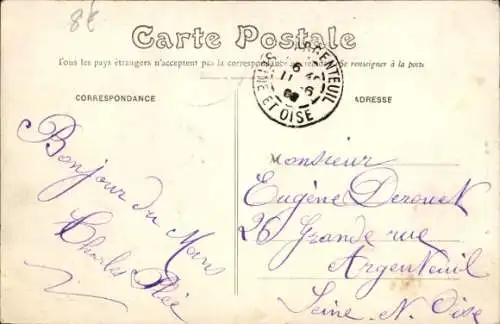 8€
Carte Postale
Tous les pays étrangers n'acceptent pas la correspondance au recto. Se renseigner à la poste
CORRESPONDANCE
ADRESSE
ARGENTEUIL
SEINE ET OISE
Bonjour du Mans
Charles
Monsieur
Eugène Derouet
26 Grande rue
Argenteuil
Seine. N. Oise